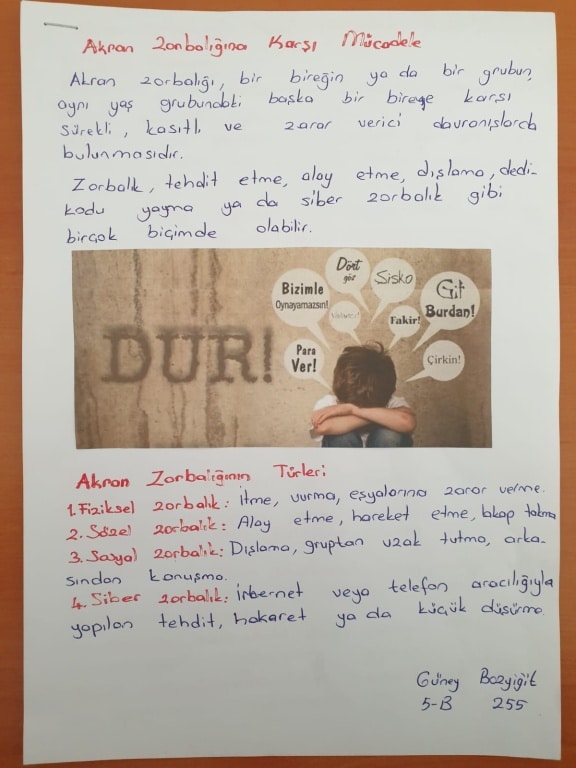 Akran Zorbalığına Karşı Mücadele
Akran zorbalığı, bir bireğin ya da bir grubun,
aynı yaş grubundaki başka bir bireye karşı
sürekli, kasıtlı ve zarar verici davranışlarda
bulunmasıdır.
Zorbalık, tehdit etme, alay etme, dışlama, dedi-
kodu yayma ya da siber zorbalık gibi
birçok biçimde olabilir.
DUR!
Bizimle
Oynayamazsın!
Dört
göz
Sisko
Git
Burdan!
Fakir!
Para
Ver!
Çirkin!
Akran Zorbalığının Türleri
1. Fiziksel zorbalık: İtme, vurma, eşyalarına zarar verme.
2. Sözel zorbalık: Alay etme, hareket etme, lakap takma
3. Sosyal zorbalık: Dışlama, gruptan uzak tutma, arka-
sından konuşma.
4. Siber zorbalık: İnternet veya telefon aracılığıyla
yapılan tehdit, hakaret ya da küçük düşürme.
Güney Bozyiğit
5-B 255